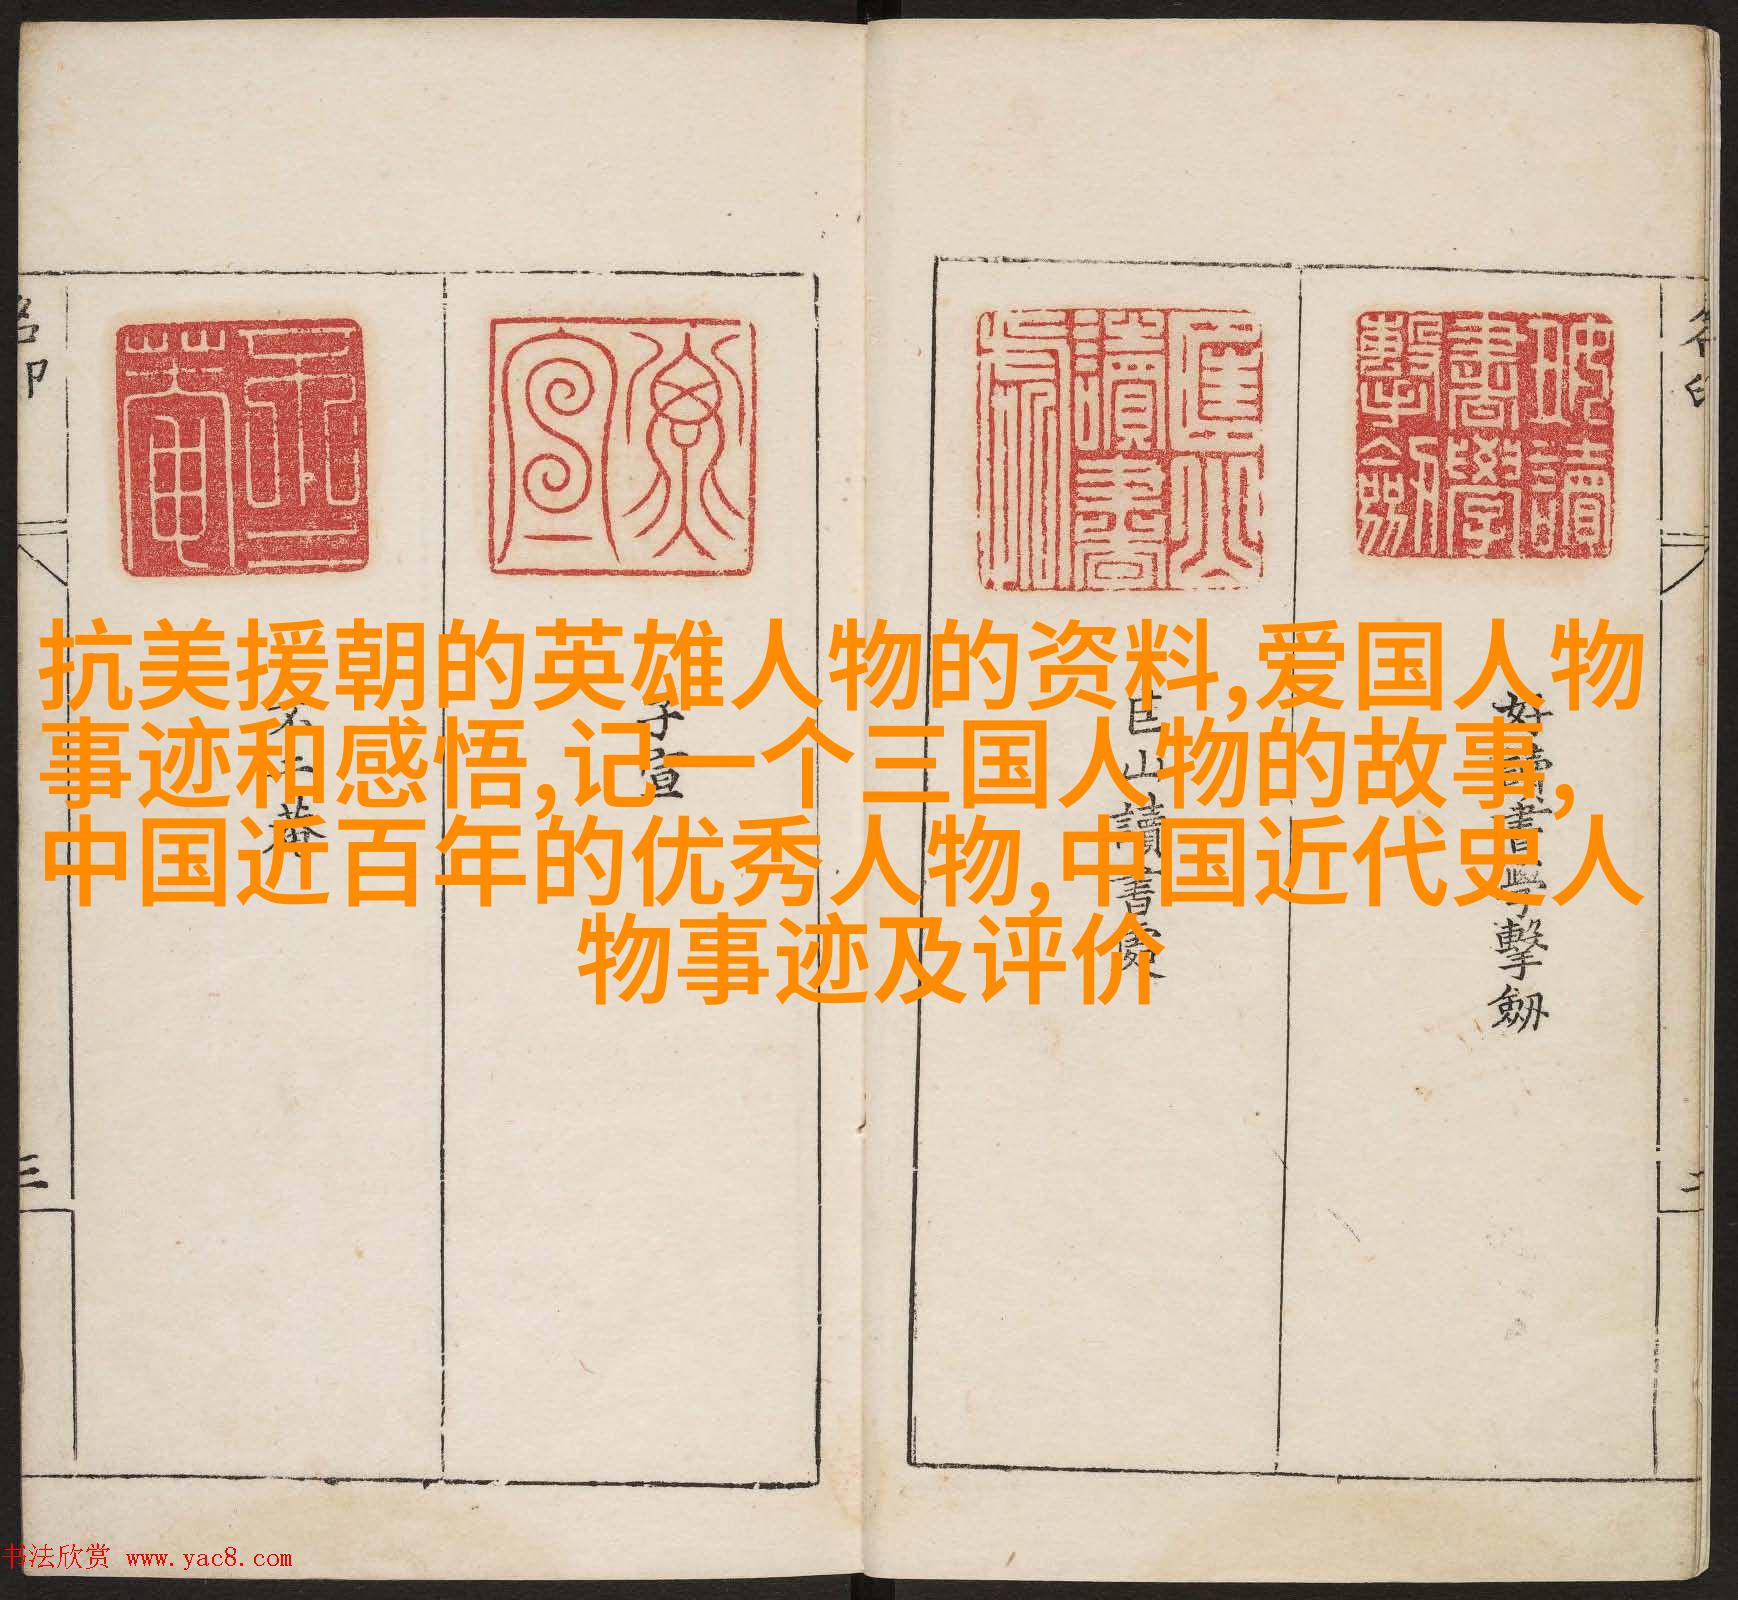 抗美援朝的英雄人物的资料,爱国人物
事迹和感悟,记一个三国人物的故事,
中国近百年的优秀人物,中国近代史人
物事迹及评价
好讀書學擊劒
匡山讀書處
子宣
不二菴
名印
三
书法欣赏 www.yac8.com